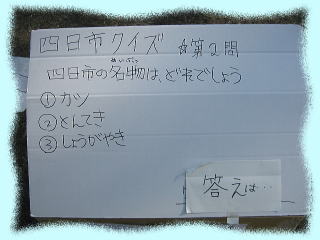 四日市クイズ ☆第2問
四日市の名物は、どれでしょう
めいぶつ
①カツ
②とんてき
③しょうがやき
答えは…